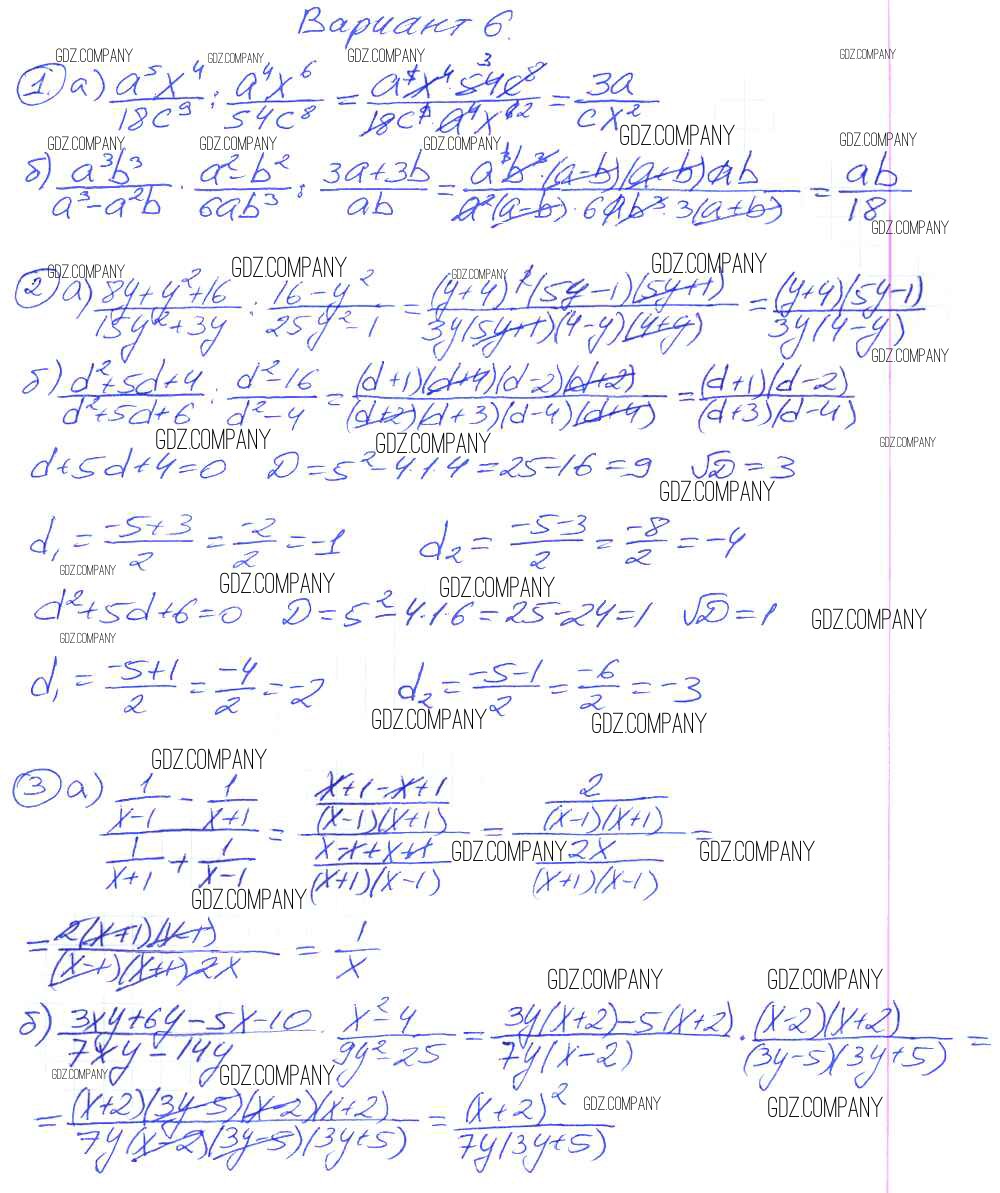 Вариант 6.
GDZ.COMPANY GDZ.COMPANY GDZ.COMPANY GDZ.COMPANY
1. а) a⁵x⁴/18c⁹ : a⁴x⁶/54c⁸ = a⁵x⁴·54c⁸ 3/18c⁹·a⁴x⁶² = 3a/cx²
GDZ.COMPANY
GDZ.COMPANY GDZ.COMPANY GDZ.COMPANY GDZ.COMPANY
б) a³b³/a³-a²b · a²-b²/6ab³ : 3a+3b/ab = a³b³·(a-b)(a+b)ab/a²(a-b)·6ab³·3(a+b) = ab/18
GDZ.COMPANY
GDZ.COMPANY GDZ.COMPANY GDZ.COMPANY GDZ.COMPANY
2 а) 8y+y²+16/15y²+3y : 16-y²/25y²-1 = (y+4)²(5y-1)(5y+1)/3y(5y+1)(4-y)(4+y) = (y+4)(5y-1)/3y(4-y)
GDZ.COMPANY
б) d²+5d+4/d²+5d+6 : d²-16/d²-4 = (d+1)(d+4)(d-2)(d+2)/(d+2)(d+3)(d-4)(d+4) = (d+1)(d-2)/(d+3)(d-4)
GDZ.COMPANY GDZ.COMPANY GDZ.COMPANY
d+5d+4=0 D=5²-4·1·4=25-16=9 √D=3
GDZ.COMPANY
d₁ = -5+3/2 = -2/2 = -1 d₂ = -5-3/2 = -8/2 = -4
GDZ.COMPANY GDZ.COMPANY GDZ.COMPANY
d²+5d+6=0 D=5²-4·1·6=25-24=1 √D=1 GDZ.COMPANY
GDZ.COMPANY
d₁ = -5+1/2 = -4/2 = -2 d₂ = -5-1/2 = -6/2 = -3
GDZ.COMPANY GDZ.COMPANY
GDZ.COMPANY
3 а) (1/x-1 - 1/x+1)/(1/x+1 + 1/x-1) = (x+1-x+1/(x-1)(x+1))/(x-1+x+1/(x+1)(x-1)) = (2/(x-1)(x+1))/(2x/(x+1)(x-1)) =
GDZ.COMPANY GDZ.COMPANY
GDZ.COMPANY
= 2(x+1)(x-1)/(x-1)(x+1)2x = 1/x
GDZ.COMPANY GDZ.COMPANY
б) 3xy+6y-5x-10/7xy-14y · x²-4/9y²-25 = 3y(x+2)-5(x+2)/7y(x-2) · (x-2)(x+2)/(3y-5)(3y+5) =
GDZ.COMPANY GDZ.COMPANY
= (x+2)(3y-5)(x-2)(x+2)/7y(x-2)(3y-5)(3y+5) = (x+2)²/7y(3y+5)
GDZ.COMPANY GDZ.COMPANY